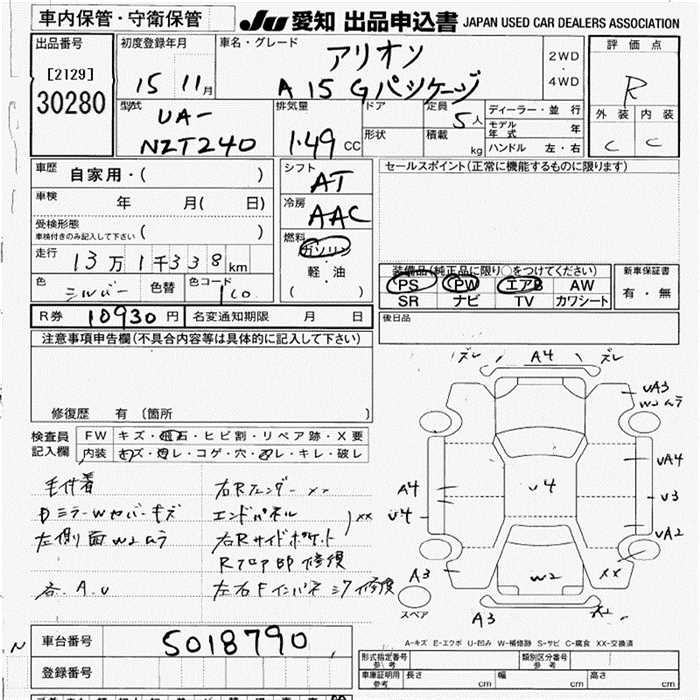 車内保管・守衛保管
JU 愛知 出品申込書 JAPAN USED CAR DEALERS ASSOCIATION
出品番号 初度登録年月 車名・グレード 評価点
[2129] 15 11月 アリオン 2WD・4WD R
30280 A15 Gパッケージ
型式 排気量 ドア 定員 5人 ディーラー・並行 外装 内装
UA- モデル年式 年 C C
NZT240 1.49 CC 形状 積載 kg ハンドル 左・右
車歴 自家用・( ) シフト AT セールスポイント(正常に機能するものに限ります)
車検 年 月( 日) 冷房 AAC
受検形態 車検付きのみ記入して下さい ( ) 燃料 ガソリン
走行 13万1千338km 軽・油 装備品(純正品に限り○をつけてください) 新車保証書
色 シルバー 色替 色コード 1C0 ( ) PS PW エアB AW 有・無
SR ナビ TV カワシート
R券 10930円 名変通知期限 月 日 後日品
注意事項申告欄(不具合内容等は具体的に記入して下さい)
修復歴 有(箇所 )
検査員記入欄 FW キズ・飛石・ヒビ割・リペア跡・X要
内装 キズ・ヨゴレ・コゲ・穴・ヌレ・キレ・破レ
ズレ A4 ズレ
UA3
W2ムラ
A4 U4 UA4
U4 U3
UA2
A3 W2 XX
A3
スペア
毛付着 右Rフェンダー XX
ドミラーWカバーキズ エンドパネル
左側面W2ムラ 右Rサイドポケット XX
Rフロア部修復
各A.U 左右Fインパネ 修復
A-キズ E-エクボ U-凹み W-補修跡 S-サビ C-腐食 XX-交換済
車台番号 5018790
登録番号
形式指定番号 参考 類別区分番号 参考
車庫証明用 参考 長さ cm 幅 cm 高さ cm